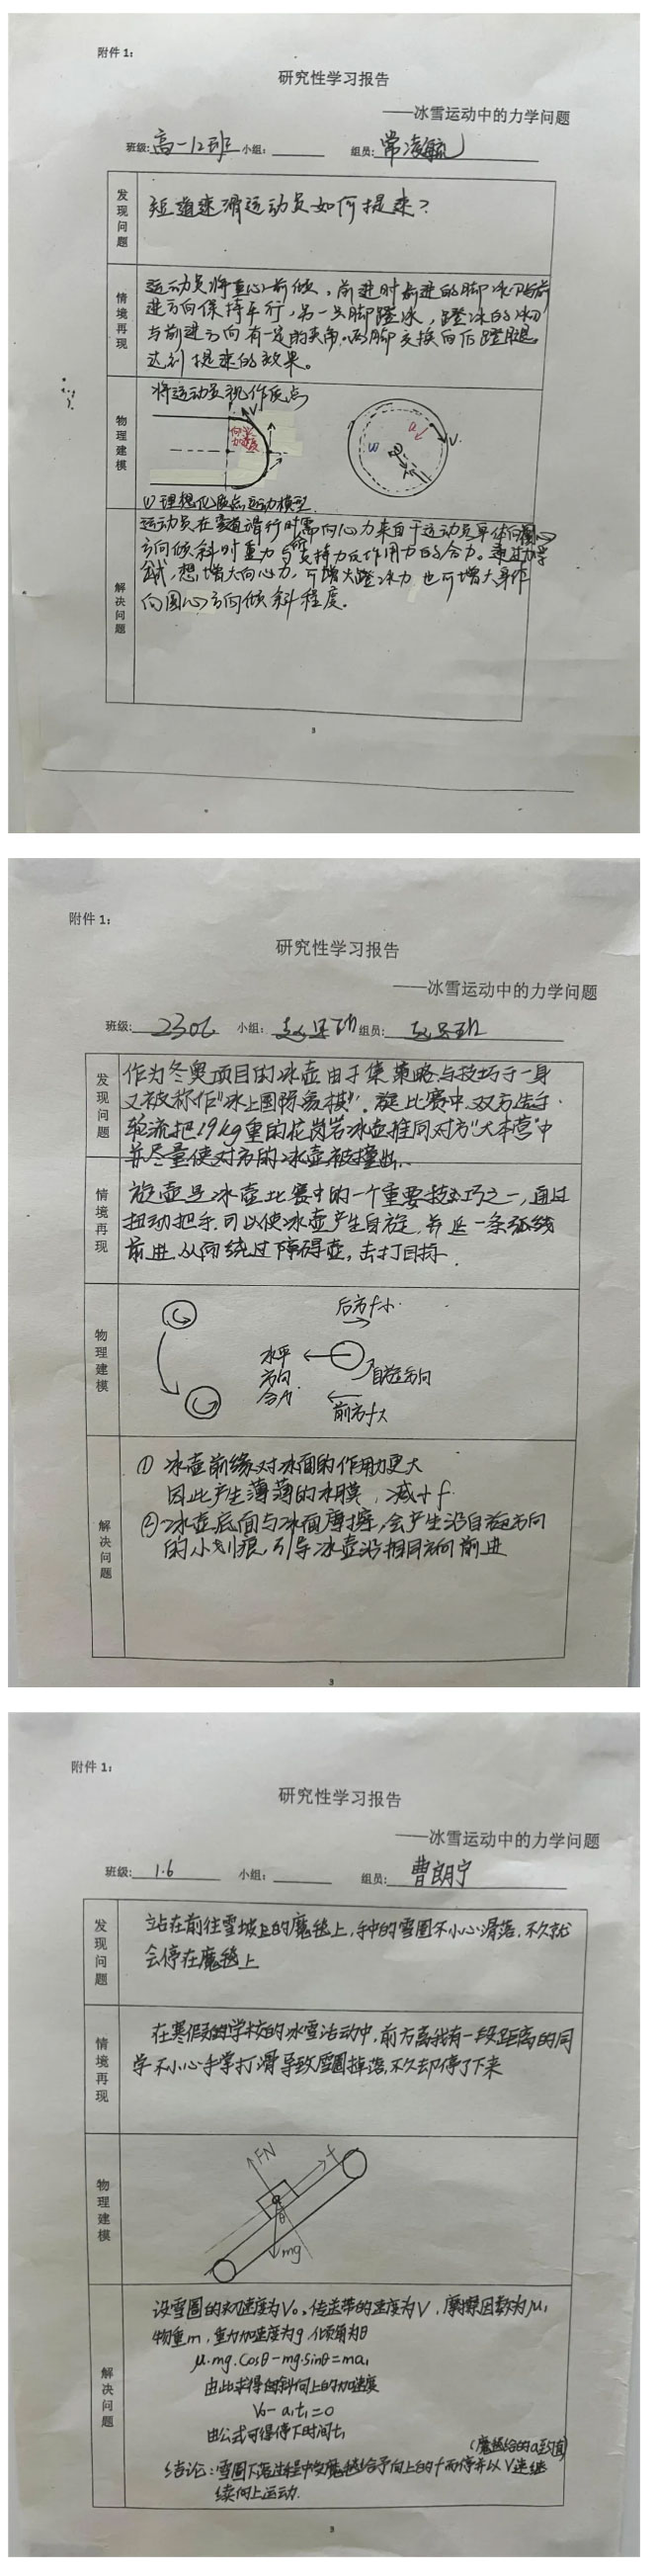 附件 1:
研究性学习报告
——冰雪运动中的力学问题
班级: 高一12班 小组: 组员: 常凌毓
发现问题
短道速滑运动员如何提速?
情境再现
运动员将重心前倾,前进时前进的脚冰刀与前
进方向保持平行,另一只脚蹬冰,蹬冰的冰刀
与前进方向有一定的夹角.两脚交换向后蹬腿
达到提速的效果。
物理建模
将运动员视作质点
V
向心加速度
a
ω
V
(1)理想化质点运动模型
解决问题
运动员在弯道滑行时所需向心力来自于运动员身体向圆心
方向倾斜时重力与支持力反作用力的合力。通过力学
,想增大向心力,可增大蹬冰力 也可增大身体
向圆心方向倾斜程度.
3
附件 1:
研究性学习报告
——冰雪运动中的力学问题
班级: 2306 小组: 组员:
发现问题
作为冬奥项目的冰壶由于集策略与技巧于一身
又被称作“冰上国际象棋”.在比赛中,双方选手
轮流把19kg重的花岗岩冰壶推向对方“大本营”中
并尽量使对方的冰壶被撞出.
情境再现
旋壶是冰壶比赛中的一个重要技巧之一,通过
扭动把手,可以使冰壶产生自旋,并延一条弧线
前进.从而绕过障碍壶,击打目标.
物理建模
后方f小
水平方向合力
自旋方向
前方f大
解决问题
① 冰壶前缘对冰面的作用力更大
因此产生薄薄的水膜,减小f.
②冰壶底面与冰面摩擦,会产生沿自旋方向
的小划痕,引导冰壶沿相同方向前进
3
附件 1:
研究性学习报告
——冰雪运动中的力学问题
班级: 1.6 小组: 组员: 曹朗宁
发现问题
站在前往雪坡上的魔毯上,手中的雪圈不小心滑落,不久就
会停在魔毯上
情境再现
在寒假的学校的冰雪活动中,前方离我有一段距离的同
学不小心手掌打滑导致雪圈掉落,不久却停了下来
物理建模
FN
f
θ
mg
解决问题
设雪圈的初速度为V₀,传送带的速度为V,摩擦因数为μ,
物重m,重力加速度为g,倾角为θ
μ·mg·cosθ-mg·sinθ=ma₁
由此求得向斜向上的加速度
V₀-a₁t₁=0
由公式可得停下时间t₁
(魔毯给的a至V值)
结论:雪圈下落过程中受魔毯给予向上的f而停并以V速继
续向上运动.
3